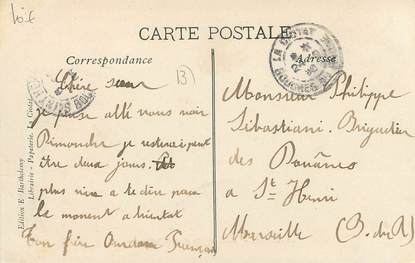 10 €
CARTE POSTALE
Correspondance
Adresse
LA CIOTAT
BOUCHES
Chère sœur
(B)
je pense allé vous voir
Dimanche je resterai peut
être deux jours.
plus rien a te dire pour
le moment a bientot
Ton frère François
Monsieur Philippe
Sébastiani. Brigadier
des Douânes
a St Henri
Marseille (B. du R)
Edition E. Barthelemy
Librairie - Papeterie, La Ciotat